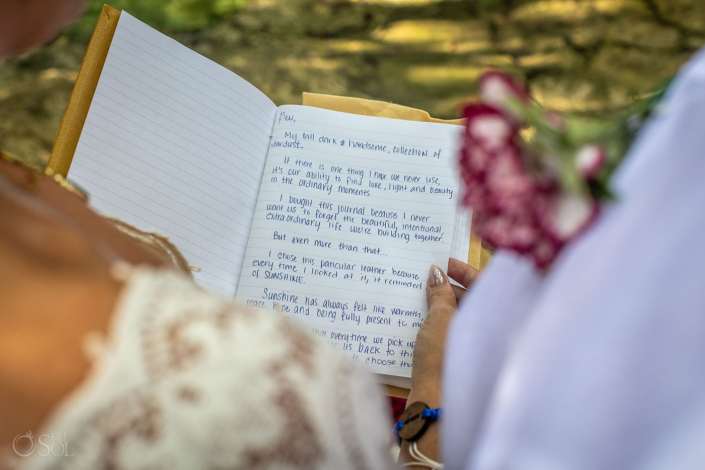 Ben,
My tall dark & handsome, collection of
stardust.
If there is one thing I hope we never lose,
it's our ability to find love, light and beauty
in the ordinary moments.
I bought this journal because I never
want us to forget the beautiful, intentional,
extraordinary life we're building together.
But even more than that...
I chose this particular leather because
every time I looked at it, it reminded
of SUNSHINE.
Sunshine has always felt like warmth,
hope and being fully present to
that everytime we pick up
us back to
to choose
SOL